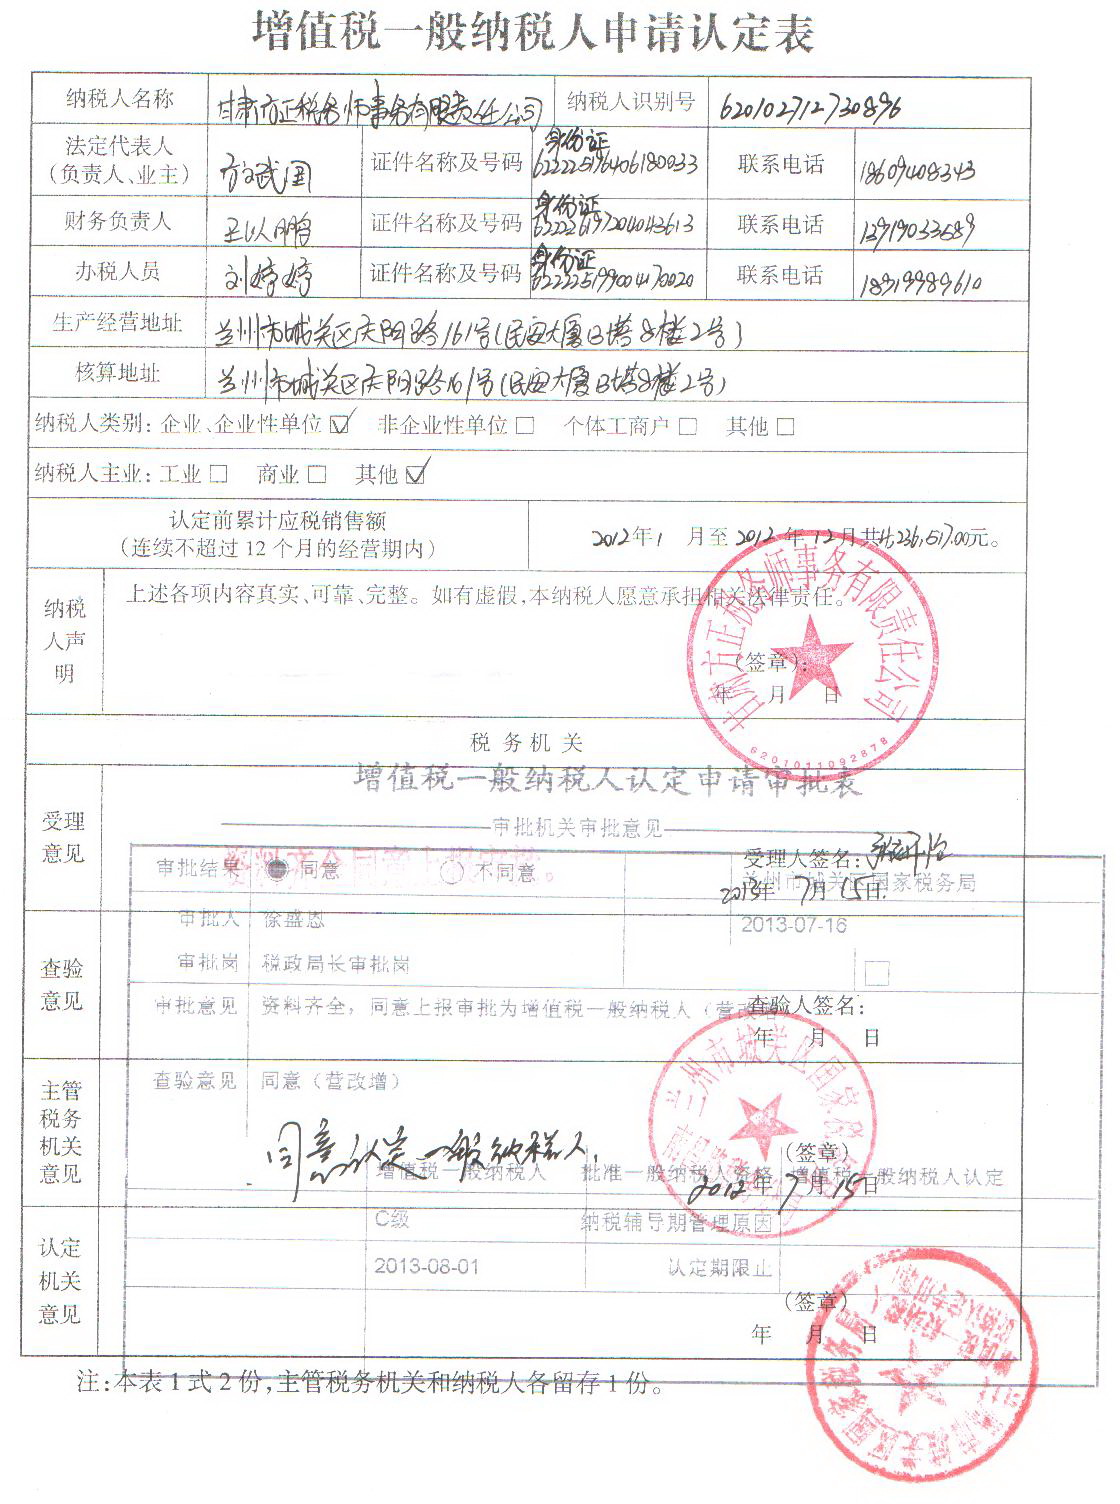 增值税一般纳税人申请认定表
纳税人名称 甘肃方正税务师事务有限责任公司 纳税人识别号 620102712730896
法定代表人（负责人、业主） 方武国 证件名称及号码 身份证 622225196406180033 联系电话 18609408343
财务负责人 证件名称及号码 身份证 622226197204043613 联系电话 13919033589
办税人员 刘婷婷 证件名称及号码 身份证 622225199004170020 联系电话 18919989610
生产经营地址 兰州市城关区庆阳路161号(民安大厦B塔8楼2号)
核算地址 兰州市城关区庆阳路161号(民安大厦B塔8楼2号)
纳税人类别：企业、企业性单位☑ 非企业性单位□ 个体工商户□ 其他□
纳税人主业：工业□ 商业□ 其他☑
认定前累计应税销售额
（连续不超过12个月的经营期内） 2012年1月至2012年12月共 236,517.00元。
纳税人声明 上述各项内容真实、可靠、完整。如有虚假,本纳税人愿意承担相关法律责任。
（签章）：
年 月 日
甘肃方正税务师事务有限责任公司
6201011092878
税务机关
增值税一般纳税人认定申请审批表
审批机关审批意见
受理意见
受理人签名：
2013年7月15日
审批结果 同意 不同意
兰州市城关区国家税务局
审批人 徐盛恩 2013-07-16
查验意见
审批岗 税政局长审批岗
审批意见 资料齐全，同意上报审批为增值税一般纳税人（营改增
查验人签名：
年 月 日
主管税务机关意见
查验意见 同意（营改增）
同意认定一般纳税人.
（签章）
2012年7月15日
兰州市城关区国家税
增值税一般纳税人 批准一般纳税人资格 增值税一般纳税人认定
C级 纳税辅导期管理原因
认定机关意见
2013-08-01 认定期限止
（签章）
年 月 日
注：本表1式2份,主管税务机关和纳税人各留存1份。